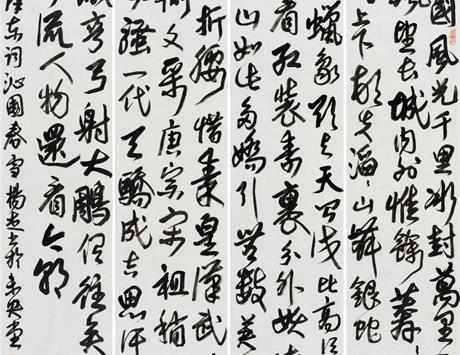 國風光千里冰封萬里
飄望長城内外惟餘莽
上下頓失滔〻山舞銀蛇
蠟象欲與天公試比高須
看紅裝素裹分外妖嬈
山如此多嬌引無數英
折腰惜秦皇漢武
文采唐宗宋祖稍
騷一代天驕成吉思汗
識彎弓射大鵰俱往矣
流人物還看今朝
澤东词沁園春雪楊 於未央堂